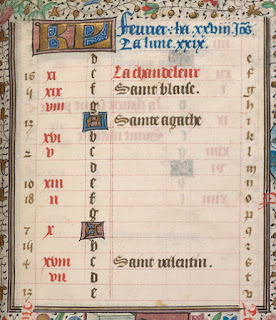 KL Feurier: ha xxviii. jos
La lune .xxix.
d e
16 xi e La chandeleur f
4 xix f Saint blaise. g
viii g h
A Sainte agathe i
xvi b k
v c l
d m
10 xiii e n
18 ii f o
g p
7 x A q
b r
4 xviii c Saint valentin. s
vii d t
12 e